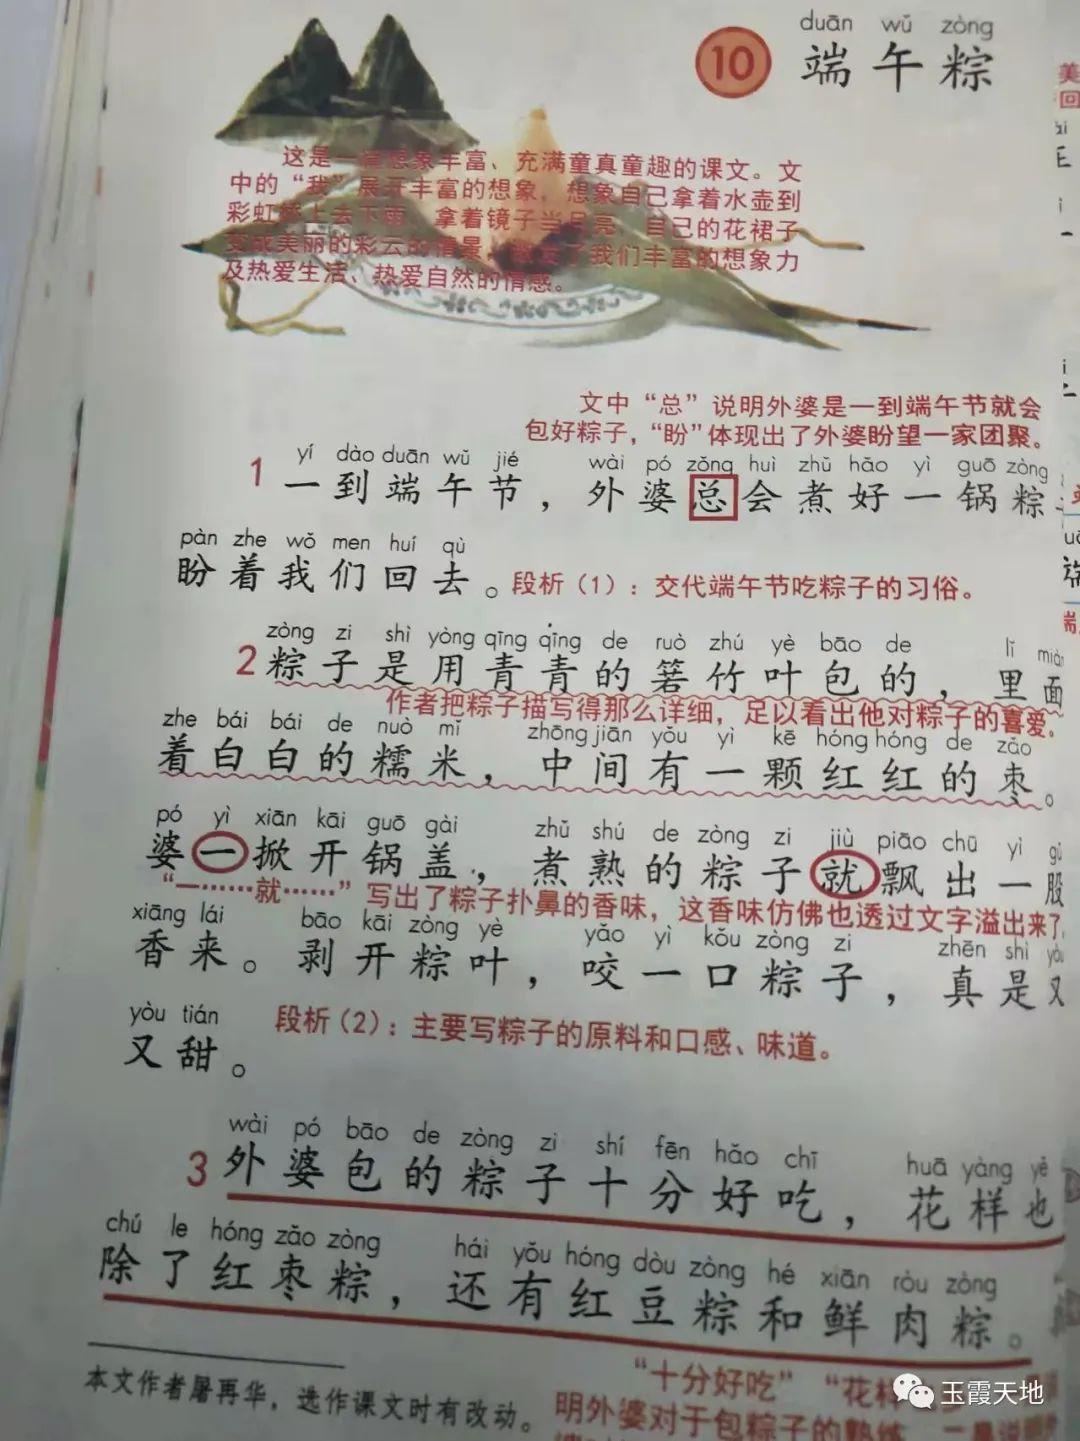 duān wǔ zòng
10 端午粽
这是一篇想象丰富、充满童真童趣的课文。文
中的“我”展开丰富的想象，想象自己拿着水壶到
彩虹桥上去下雨，拿着镜子当月亮，自己的花裙子
变成美丽的彩云的情景，激发了我们丰富的想象力
及热爱生活、热爱自然的情感。
文中“总”说明外婆是一到端午节就会
包好粽子，“盼”体现出了外婆盼望一家团聚。
yí dào duān wǔ jié wài pó zǒng huì zhǔ hǎo yì guō zòng
1 一到端午节，外婆总会煮好一锅粽
pàn zhe wǒ men huí qù
盼着我们回去。段析（1）：交代端午节吃粽子的习俗。
zòng zi shì yòng qīng qīng de ruò zhú yè bāo de lǐ miàn
2 粽子是用青青的箬竹叶包的，里面
作者把粽子描写得那么详细，足以看出他对粽子的喜爱。
zhe bái bái de nuò mǐ zhōng jiān yǒu yì kē hóng hóng de zǎo
着白白的糯米，中间有一颗红红的枣。
pó yì xiān kāi guō gài zhǔ shú de zòng zi jiù piāo chū yì gǔ
婆一掀开锅盖，煮熟的粽子就飘出一股
“一……就……”写出了粽子扑鼻的香味，这香味仿佛也透过文字溢出来了
xiāng lái bāo kāi zòng yè yǎo yì kǒu zòng zi zhēn shì yòu
香来。剥开粽叶，咬一口粽子，真是又
yòu tián
又甜。段析（2）：主要写粽子的原料和口感、味道。
wài pó bāo de zòng zi shí fēn hǎo chī huā yàng yě
3 外婆包的粽子十分好吃，花样也
chú le hóng zǎo zòng hái yǒu hóng dòu zòng hé xiān ròu zòng
除了红枣粽，还有红豆粽和鲜肉粽。
本文作者屠再华，选作课文时有改动。
“十分好吃”“花样
明外婆对于包粽子的熟练
玉霞天地